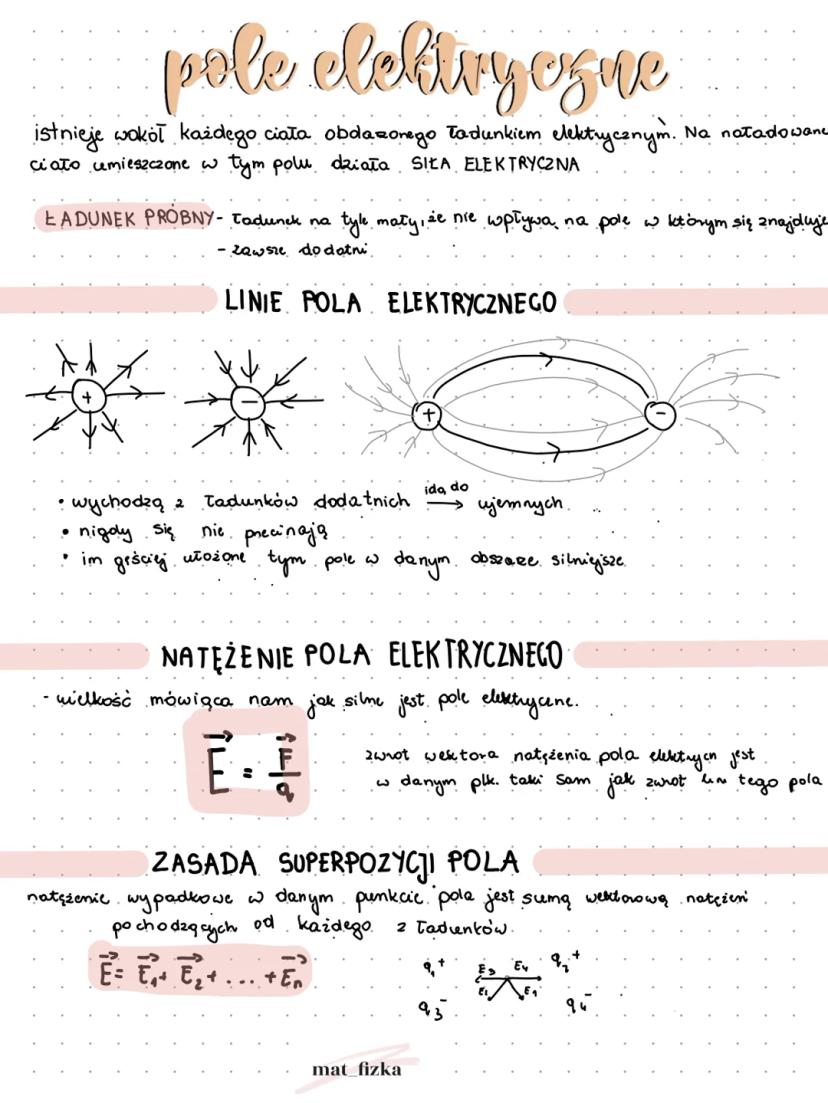 pole elektryczne
istnieje wokół każdego ciała obdarzonego ładunkiem elektrycznym. Na naładowane
ciało umieszczone w tym polu działa SIŁA ELEKTRYCZNA
ŁADUNEK PRÓBNY - ładunek na tyle mały, że nie wpływa na pole w którym się znajduje
- zawsze dodatni
LINIE POLA ELEKTRYCZNEGO
+ − + −
• wychodzą z ładunków dodatnich idą do → ujemnych
• nigdy się nie przecinają
• im gęściej ułożone tym pole w danym obszarze silniejsze
NATĘŻENIE POLA ELEKTRYCZNEGO
- wielkość mówiąca nam jak silne jest pole elektryczne.
E = F/q
zwrot wektora natężenia pola elektrycn jest
w danym pkt. taki sam jak zwrot linn tego pola
ZASADA SUPERPOZYCJI POLA
natężenie wypadkowe w danym punkcie pola jest sumą wektorową natężeń
pochodzących od każdego z ładunków
E = E₁ + E₂ + ... + Eₙ
q₁⁺ E₃ E₄ q₂⁺
q₃⁻ E₁ q₄⁻
mat_fizka